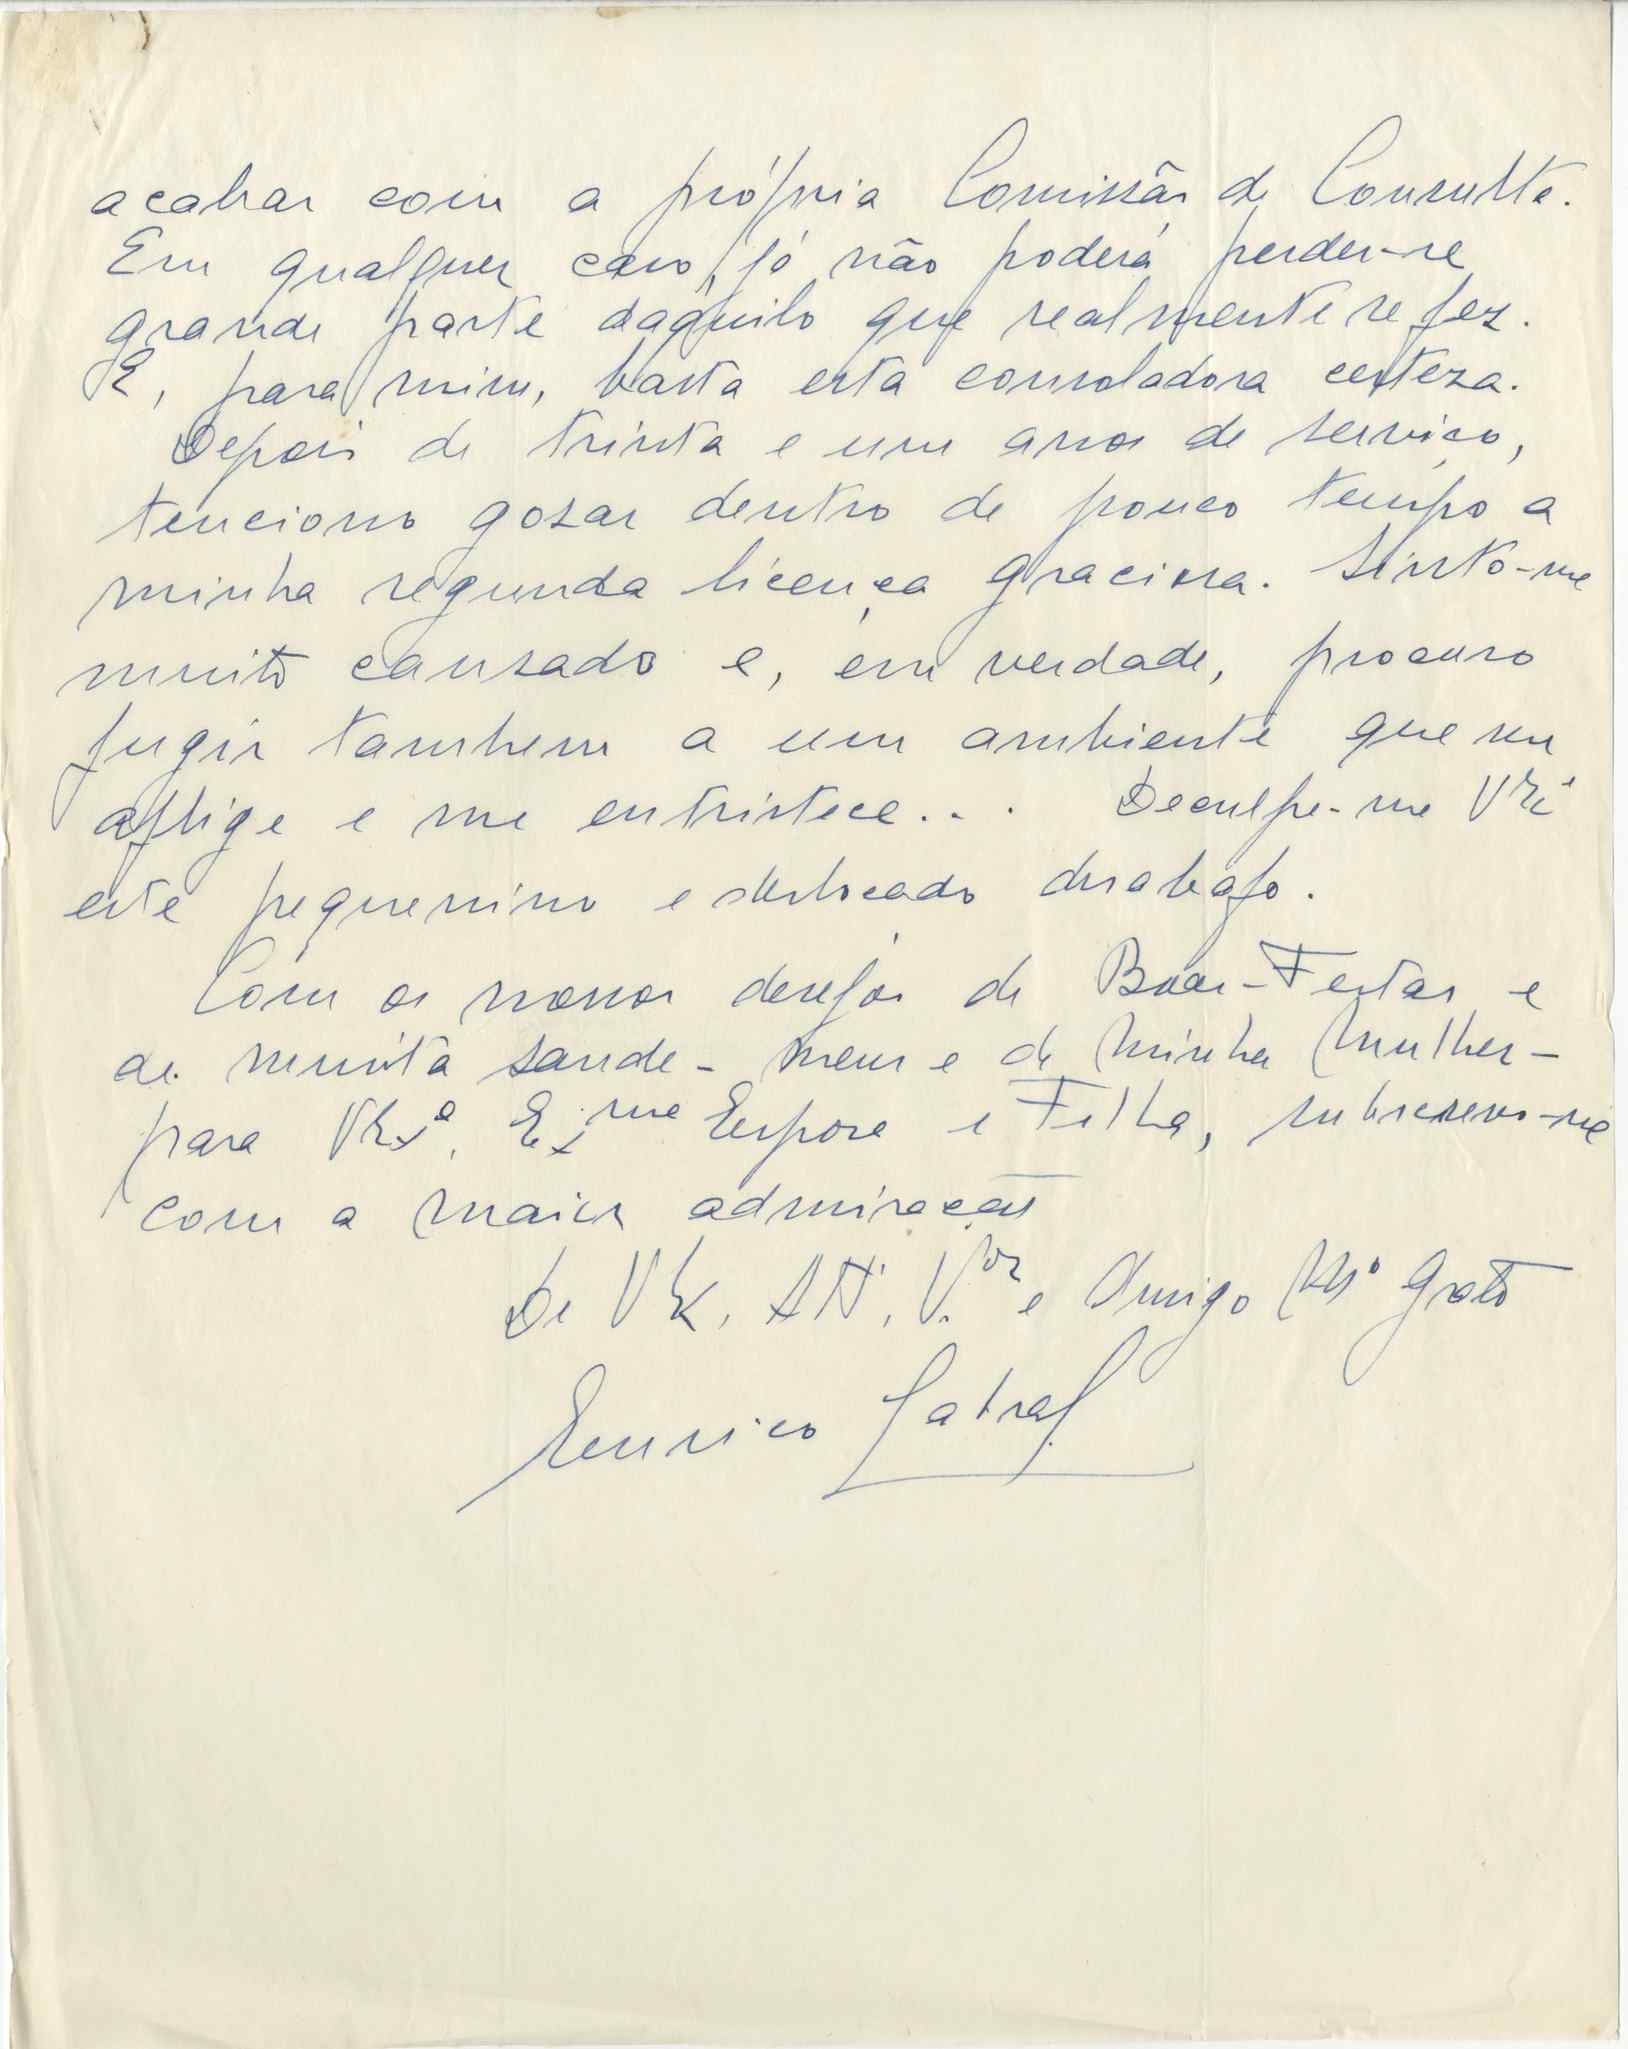 acabar com a própria Comissão de Consulta.
Em qualquer caso, já não poderá perder-se
grande parte daquilo que realmente se fez.
E, para mim, basta esta consoladora certeza.
Depois de trinta e um anos de serviço,
tenciono gozar dentro de pouco tempo a
minha segunda licença graciosa. Sinto-me
muito cansado e, em verdade, procuro
fugir tambem a um ambiente que me
aflige e me entristece... Desculpe-me VExª
este pequenino e deslocado desabafo.
Com os nossos desejos de Boas-Festas e
de muita saude - meus e de Minha Mulher -
para VExª, Exma Esposa e Filha, subscrevo-me
com a maior admiração
De VEx, Att., V.or e Amigo Mtº Grato
Eurico Cabral